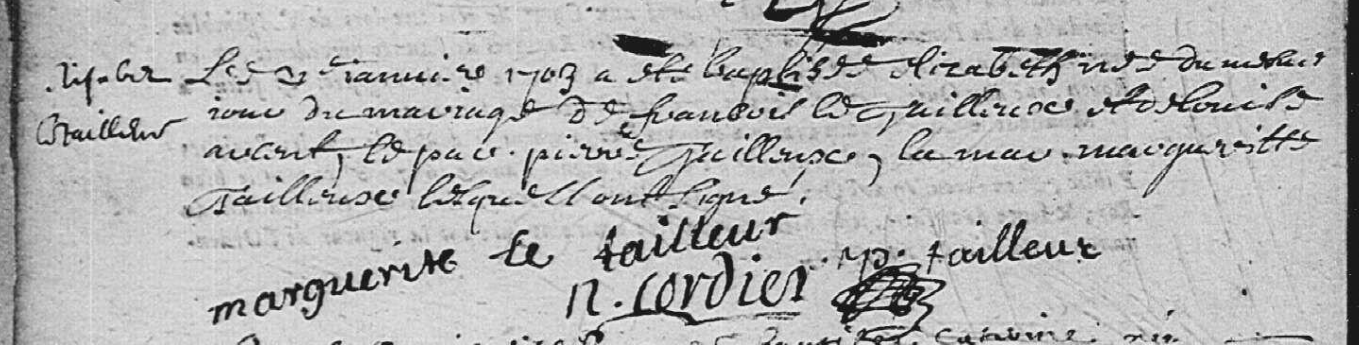 Elisabet
Le Tailleur
Le 3e ianuiere 1703 a ete baptisée elizabeth née du mesme
iour du mariage de francois le Tailleur et de louise
le par. pierre Tailleur, la mar. margueritte
Tailleur lesquell ont signé.
marguerite le tailleur
n. cordier p. tailleur